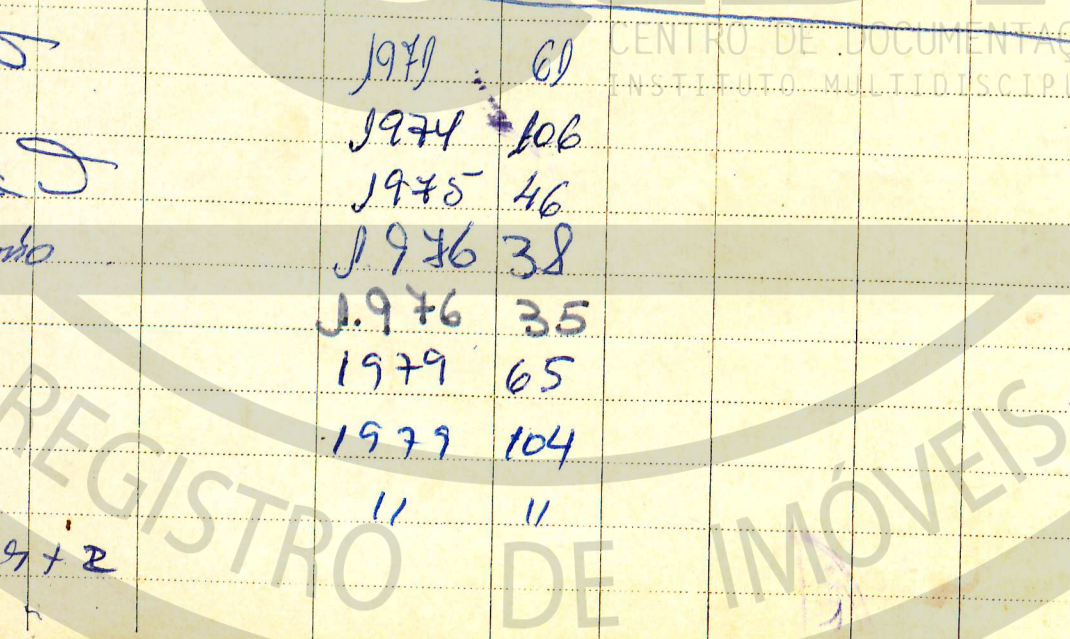 CENTRO DE DOCUMENTAÇ
INSTITUTO MULTIDISCIPL
1971 61
1974 106
1975 46
1.976 38
1.976 35
1979 65
1979 104
" "
REGISTRO DE IMÓVEIS